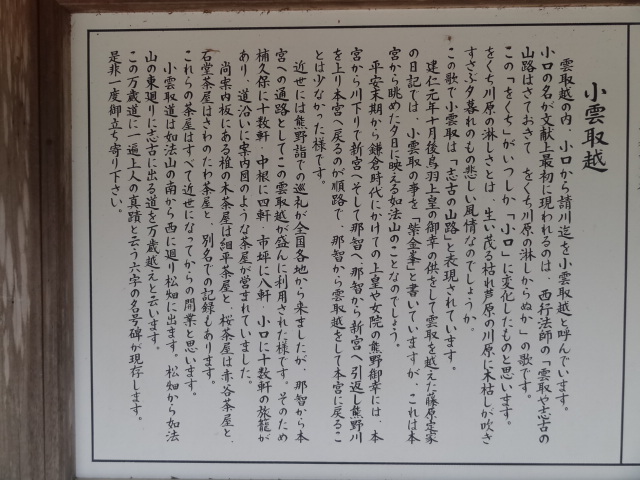 小雲取越
雲取越の内、小口から請川迄を小雲取越と呼んでいます。
小口の名が文献上最初に現われるのは、西行法師の「雲取や志古の
山路はさておきて　をくち川原の淋しからぬか」の歌です。
この「をくち」がいつしか「小口」に変化したものと思います。
をくち川原の淋しさとは、生い茂る枯れ芦原の川原に木枯しが吹き
すさぶ夕暮れのもの悲しい風情なのでしょうか。
この歌で小雲取は「志古の山路」と表現されています。
建仁元年十月後鳥羽上皇の御幸の供をして雲取を越えた藤原定家
の日記では、小雲取の事を「紫金峯」と書いていますが、これは本
宮から眺めた夕日に映える如法山のことなのでしょう。
平安末期から鎌倉時代にかけての上皇や女院の熊野御幸には、本
宮から川下りで新宮へそして那智へ、那智から新宮へ引返し熊野川
を上り本宮へ戻るのが順路で、那智から雲取越をして本宮に戻るこ
とは少なかった様です。
近世には熊野詣での巡礼が全国各地から来ましたが、那智から本
宮への通路としてこの雲取越が盛んに利用された様です。そのため
楠久保に十数軒・中根に四軒・市坪に八軒・小口に十数軒の旅籠が
あり、道沿いに案内図のような茶屋が営まれていました。
尚案内板にある椎の木茶屋は細平茶屋と、桜茶屋は赤谷茶屋と、
石堂茶屋はさわのたわ茶屋と、別名での記録もあります。
これらの茶屋はすべて近世になってからの開業と思います。
小雲取道は如法山の南から西に廻り松畑に出ます。松畑から如法
山の東廻りに志古に出る道を万歳越えと云います。
この万歳道に一遍上人の真蹟と云う六字の名号碑が現存します。
是非一度御立ち寄り下さい。